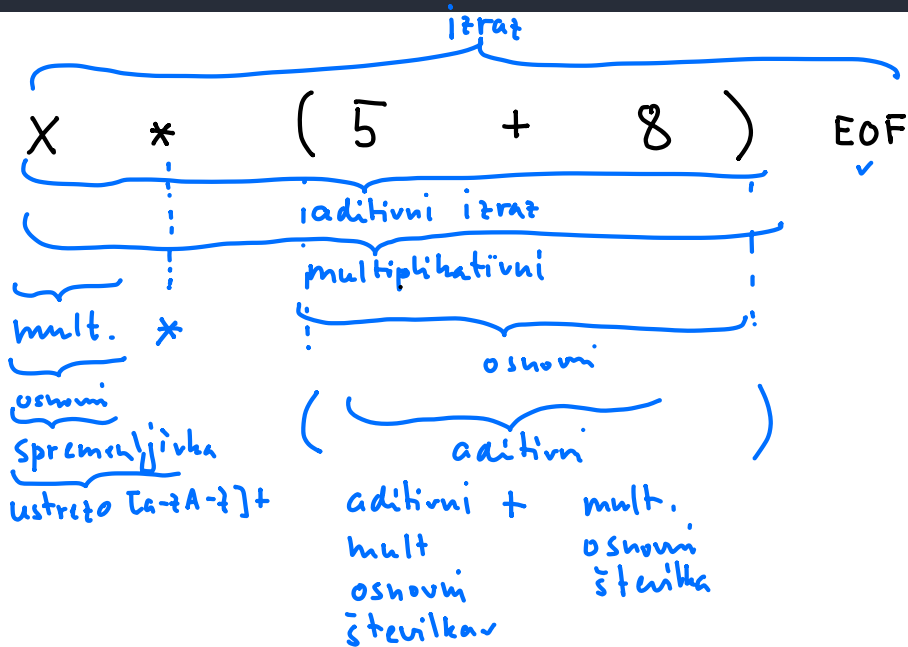 izraz
X * ( 5 + 8 ) EOF
aditivni izraz
multiplikativni
mult. *
osnovni
osnovni
spremenljivka
( aditivni )
ustreza [a-zA-Z]+
aditivni + mult.
mult osnovni
osnovni številka
številka